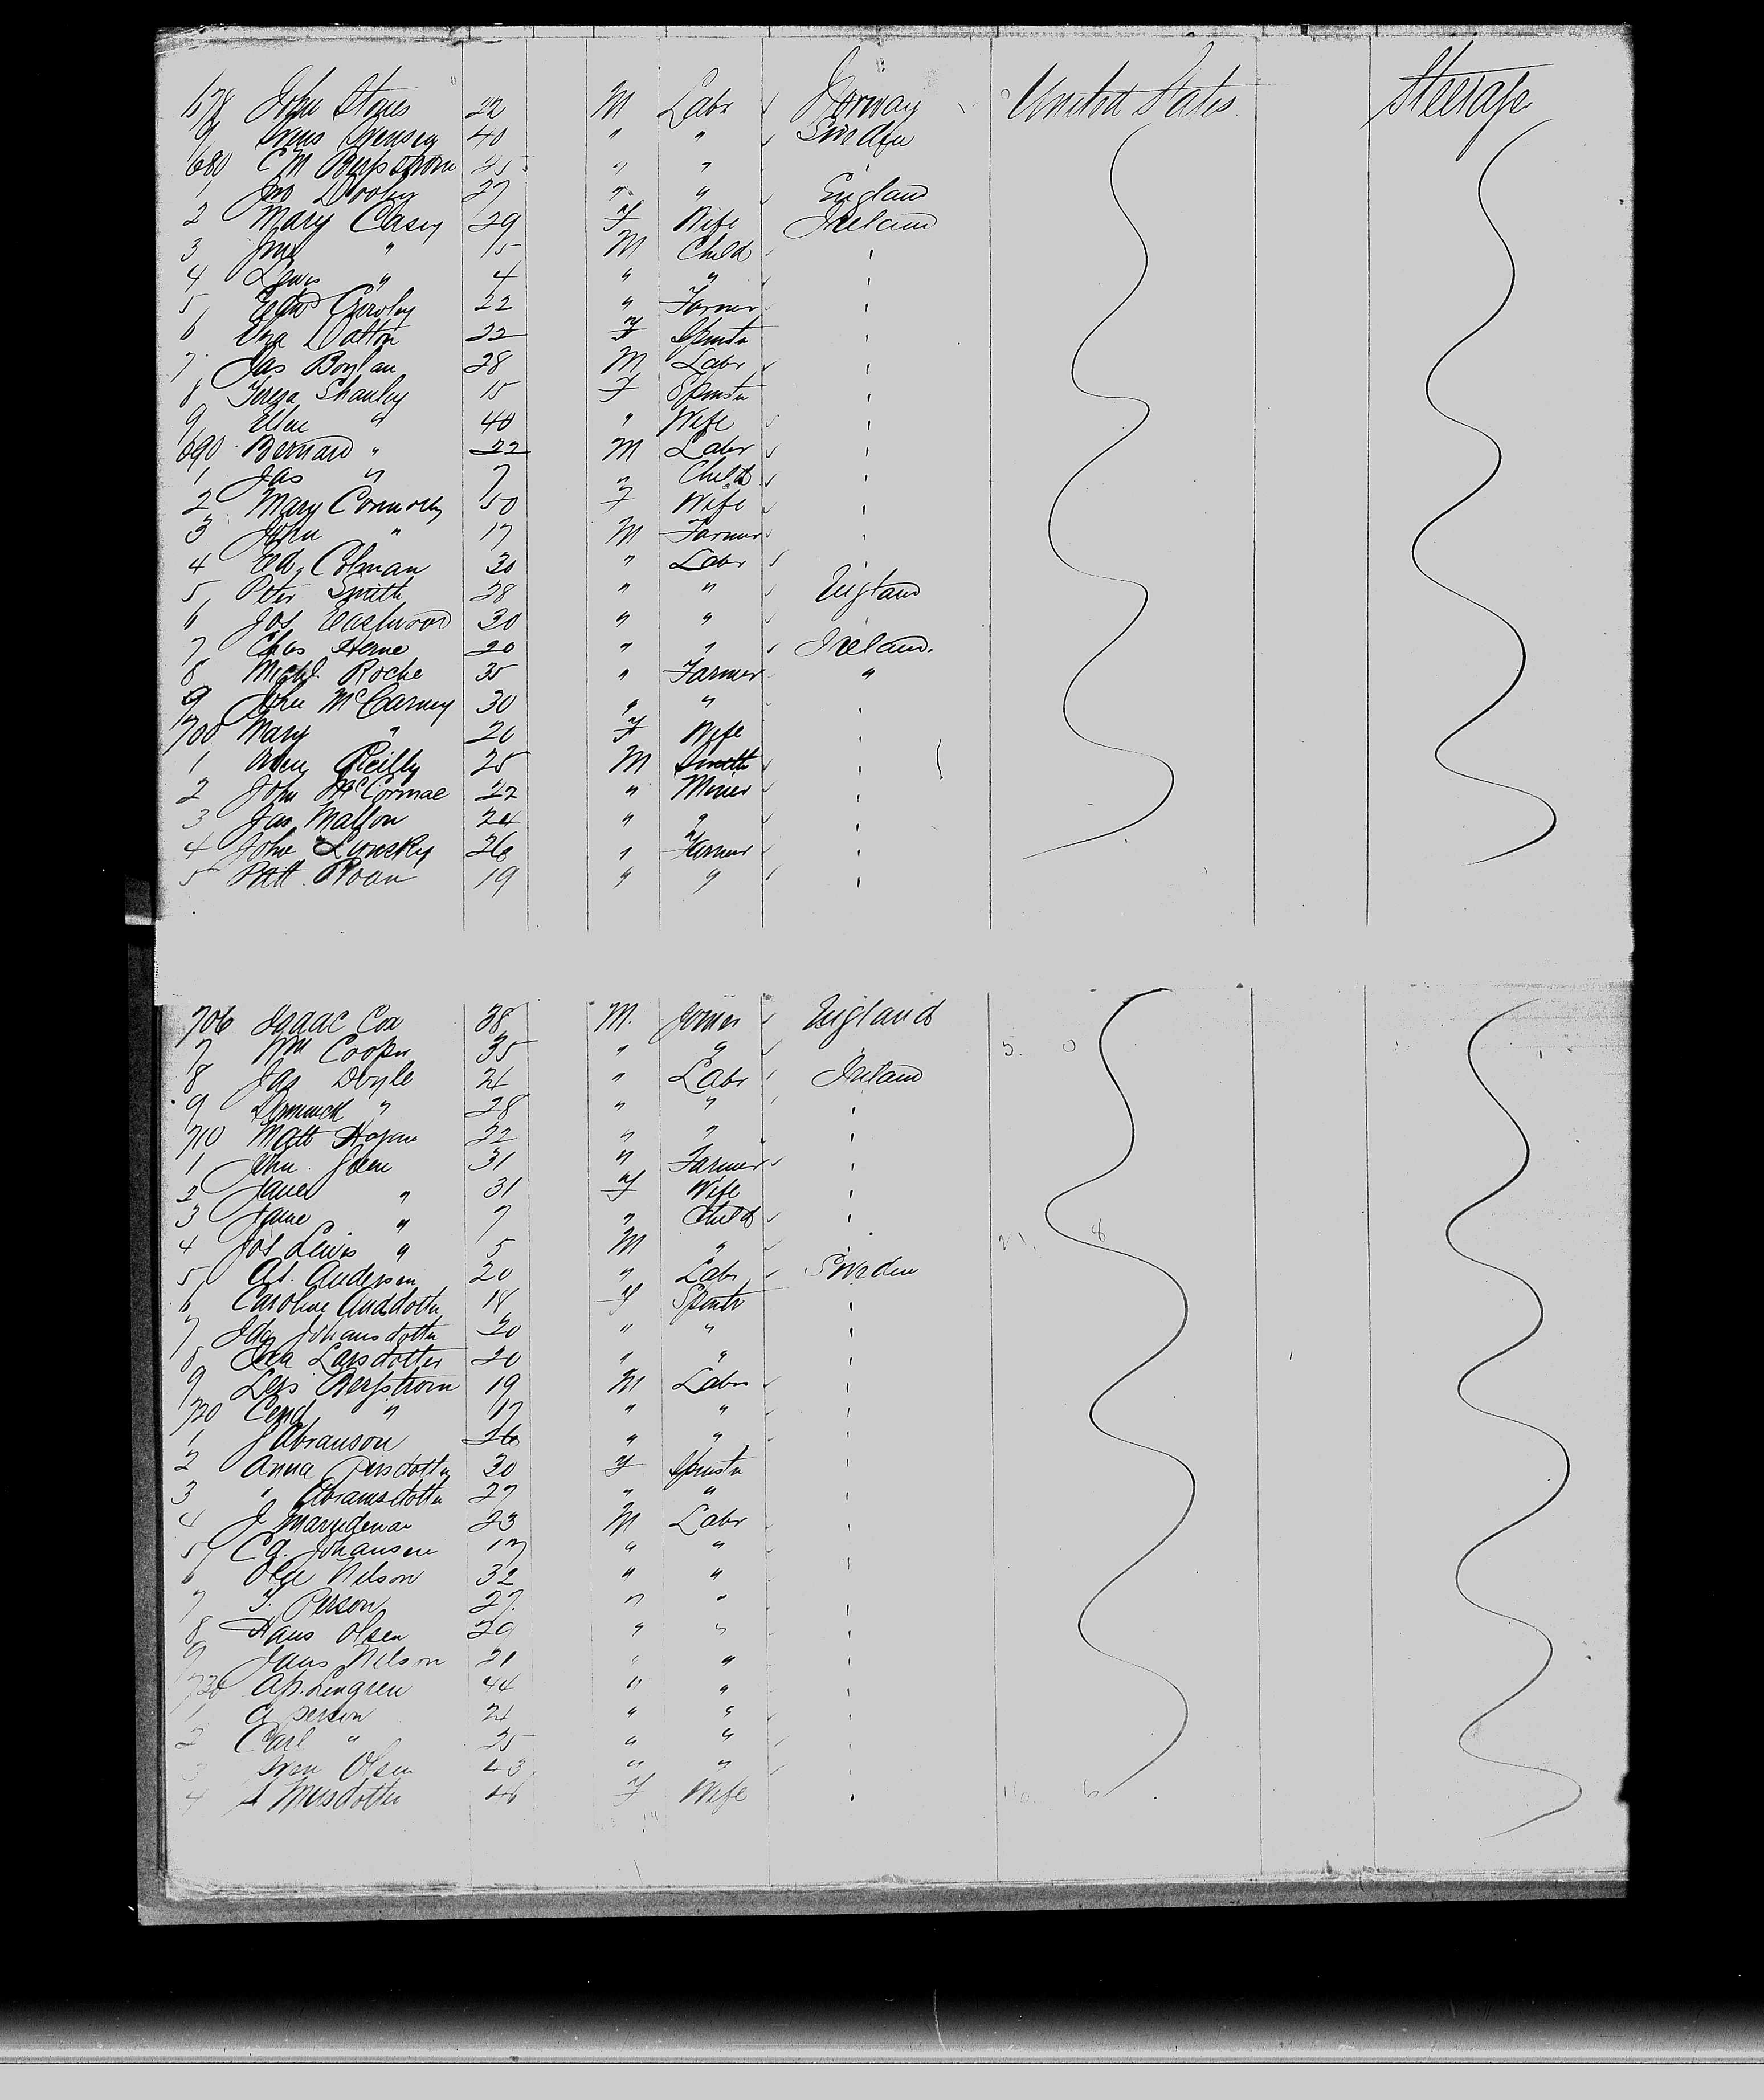 678 John Stones 22 M Labr Norway United States Steerage
9 Swensen 40 " " Sweden
680 C M Bergstrom 25 " " '
1 Jno Dooley 27 " " England
2 Mary Casey 29 F Wife Ireland
3 Jno " 15 M Child '
4 Lewis " 4 " " '
5 Edwd Crowley 22 " Farmer '
6 Eliza Dalton 22 F Spinstr '
7 Jas Boylan 28 M Labr '
8 Teresa Shanley 15 F Spinstr '
9 Ellen " 40 " Wife '
690 Bernard " 22 M Labr '
1 Jas " 7 " Child '
2 Mary Connolly 50 F Wife '
3 John " 17 M Farmer '
4 Edw. Colman 30 " Labr '
5 Peter Smith 28 " " England
6 Jos Eastwood 30 " " '
7 Chas Herne 20 " " Ireland.
8 Michl. Roche 35 " Farmer "
9 John McCarney 30 " " '
700 Mary " 20 F Wife '
1 Owen Reilly 25 M Smith '
2 John McCormac 22 " Miner '
3 Jas Mallon 24 " " '
4 John Lynsky 26 " Farmer '
5 Patt. Roan 19 " " '
706 Isaac Cox 38 M. Joiner England
7 Wm Cooper 35 " " '
8 Jas Doyle 21 " Labr Ireland
9 Dominick " 28 " " '
710 Matt Hogan 22 " " '
1 John Green 31 " Farmer '
2 Jane " 31 F Wife '
3 Jane " 7 " Child '
4 Jos Lewis " 5 M " '
5 A. Andersen 20 " Labr Sweden
6 Caroline Andsdotter 18 F Spinstr '
7 Ida Johansdotter 20 " " '
8 Eva Larsdotter 20 " " '
9 Lars Bergstrom 19 M Labr '
720 " 17 " " '
1 J Abranson 26 " " '
2 Anna Persdotter 30 F Spinstr '
3 " Abramsdotter 27 " " '
4 J 23 M Labr '
5 C A. Johansen 17 " " '
6 Ole Nelson 32 " " '
7 Person 27 " " '
8 Hans Olsen 29 " " '
9 Jans Nelson 21 " " '
730 A P. Lengren 44 " " '
1 A person 21 " " '
2 Carl " 25 " " '
3 Sven Olsen 43 " " '
4 46 F Wife '